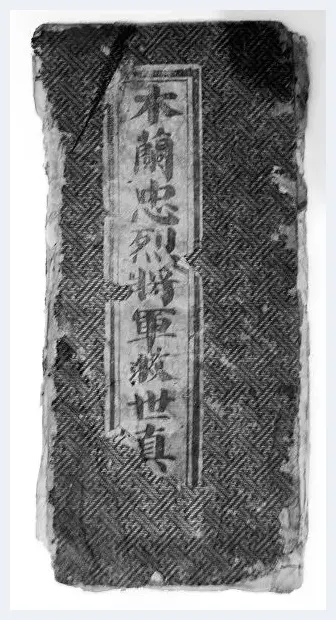 木蘭忠烈將軍救世真